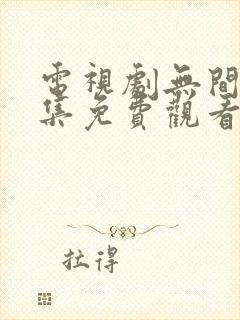 電視劇無間
集免費觀看
拉得